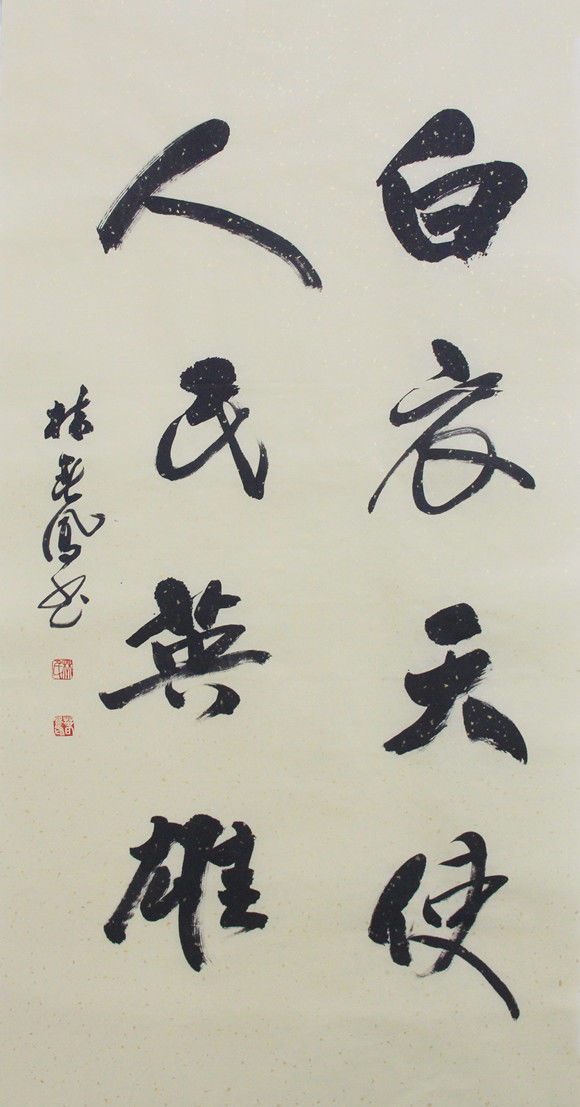 白衣天使
人民英雄
林春凤书